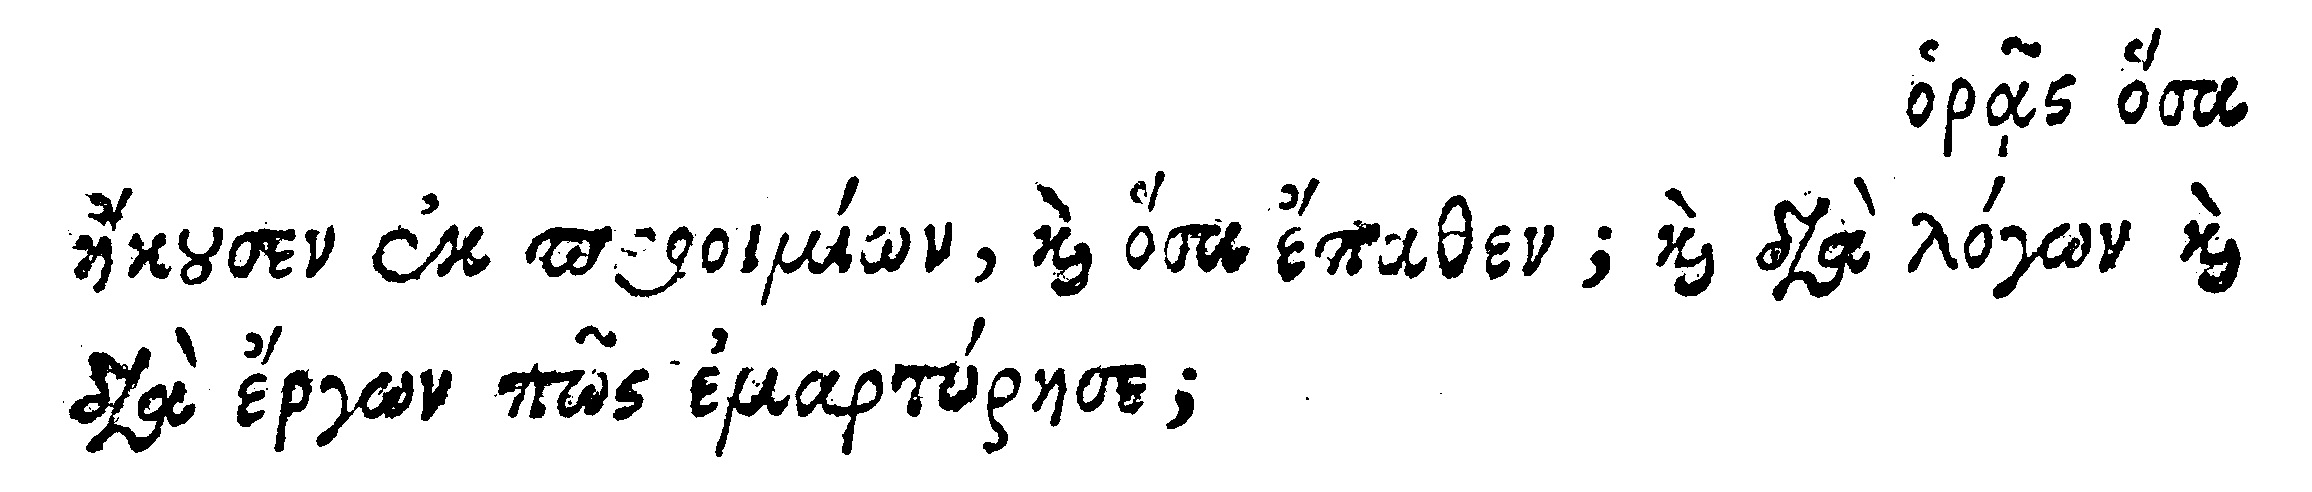 ὁρᾷς ὅσα
ἤκουσεν ἐκ προοιμίων, καὶ ὅσα ἔπαθεν; καὶ διὰ λόγων καὶ
διὰ ἔργων πῶς ἐμαρτύρησε;